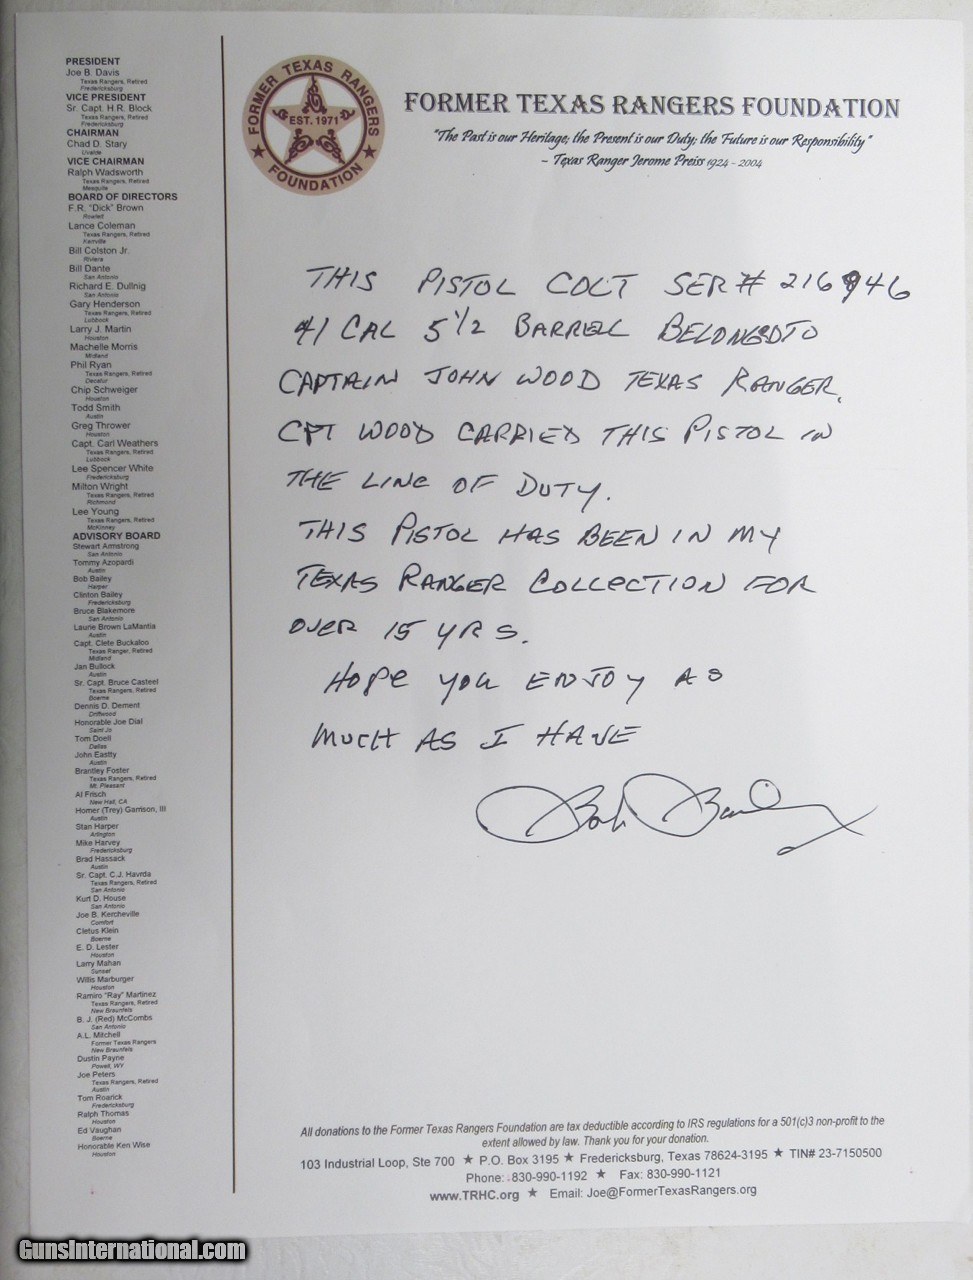 PRESIDENT
Joe B. Davis
Texas Rangers, Retired
Fredericksburg
VICE PRESIDENT
Sr. Capt. H.R. Block
Texas Rangers, Retired
Fredericksburg
CHAIRMAN
Chad D. Stary
Uvalde
VICE CHAIRMAN
Ralph Wadsworth
Texas Rangers, Retired
Mesquite
BOARD OF DIRECTORS
F.R. "Dick" Brown
Rowlett
Lance Coleman
Texas Rangers, Retired
Kerrville
Bill Colston Jr.
Riviera
Bill Dante
San Antonio
Richard E. Dullnig
San Antonio
Gary Henderson
Texas Rangers, Retired
Lubbock
Larry J. Martin
Houston
Machelle Morris
Midland
Phil Ryan
Texas Rangers, Retired
Decatur
Chip Schweiger
Houston
Todd Smith
Austin
Greg Thrower
Houston
Capt. Carl Weathers
Texas Rangers, Retired
Lubbock
Lee Spencer White
Fredericksburg
Milton Wright
Texas Rangers, Retired
Richmond
Lee Young
Texas Rangers, Retired
McKinney
ADVISORY BOARD
Stewart Armstrong
San Antonio
Tommy Azopardi
Austin
Bob Bailey
Harper
Clinton Bailey
Fredericksburg
Bruce Blakemore
San Antonio
Laurie Brown LaMantia
Austin
Capt. Clete Buckaloo
Texas Ranger, Retired
Midland
Jan Bullock
Austin
Sr. Capt. Bruce Casteel
Texas Rangers, Retired
Boerne
Dennis D. Dement
Driftwood
Honorable Joe Dial
Saint Jo
Tom Doell
Dallas
John Eastly
Austin
Brantley Foster
Texas Rangers, Retired
Mt. Pleasant
Al Frisch
New Hall, CA
Homer (Trey) Garrison, III
Austin
Stan Harper
Arlington
Mike Harvey
Fredericksburg
Brad Hassack
Austin
Sr. Capt. C.J. Havrda
Texas Rangers, Retired
San Antonio
Kurt D. House
San Antonio
Joe B. Kercheville
Comfort
Cletus Klein
Boerne
E. D. Lester
Houston
Larry Mahan
Sunset
Willis Marburger
Houston
Ramiro "Ray" Martinez
Texas Rangers, Retired
New Braunfels
B. J. (Red) McCombs
San Antonio
A.L. Mitchell
Former Texas Rangers
New Braunfels
Dustin Payne
Powell, WY
Joe Peters
Texas Rangers, Retired
Austin
Tom Roarick
Fredericksburg
Ralph Thomas
Houston
Ed Vaughan
Boerne
Honorable Ken Wise
Houston
FORMER TEXAS RANGERS
EST. 1971
FOUNDATION
FORMER TEXAS RANGERS FOUNDATION
"The Past is our Heritage; the Present is our Duty; the Future is our Responsibility"
~ Texas Ranger Jerome Preiss 1924 - 2004
THIS PISTOL COLT SER# 216946
41 CAL 5 1/2 BARREL BELONGED TO
CAPTAIN JOHN WOOD TEXAS RANGER.
CPT WOOD CARRIED THIS PISTOL IN
THE LINE OF DUTY.
THIS PISTOL HAS BEEN IN MY
TEXAS RANGER COLLECTION FOR
OVER 15 YRS.
HOPE YOU ENJOY AS
MUCH AS I HAVE
Bob Bailey
All donations to the Former Texas Rangers Foundation are tax deductible according to IRS regulations for a 501(c)3 non-profit to the
extent allowed by law. Thank you for your donation.
103 Industrial Loop, Ste 700 ★ P.O. Box 3195 ★ Fredericksburg, Texas 78624-3195 ★ TIN# 23-7150500
Phone: 830-990-1192 ★ Fax: 830-990-1121
www.TRHC.org ★ Email: Joe@FormerTexasRangers.org
GunsInternational.com